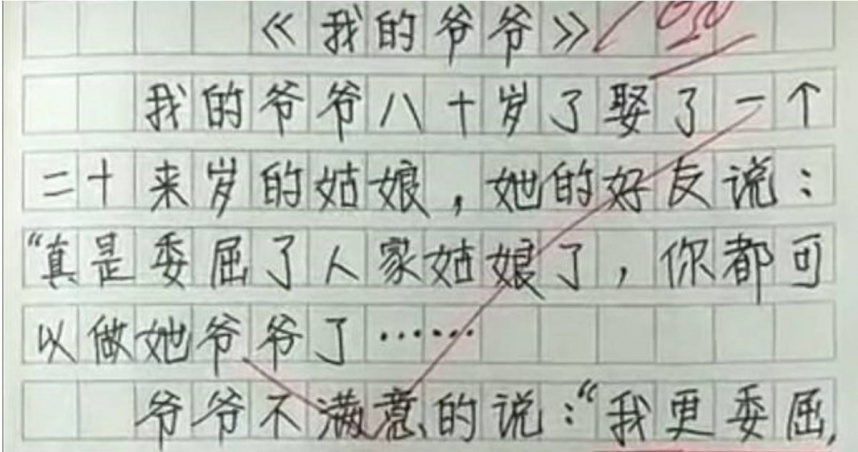 《我的爷爷》
我的爷爷八十岁了娶了一个
二十来岁的姑娘，她的好友说：
“真是委屈了人家姑娘了，你都可
以做她爷爷了……
爷爷不满意的说：“我更委屈，